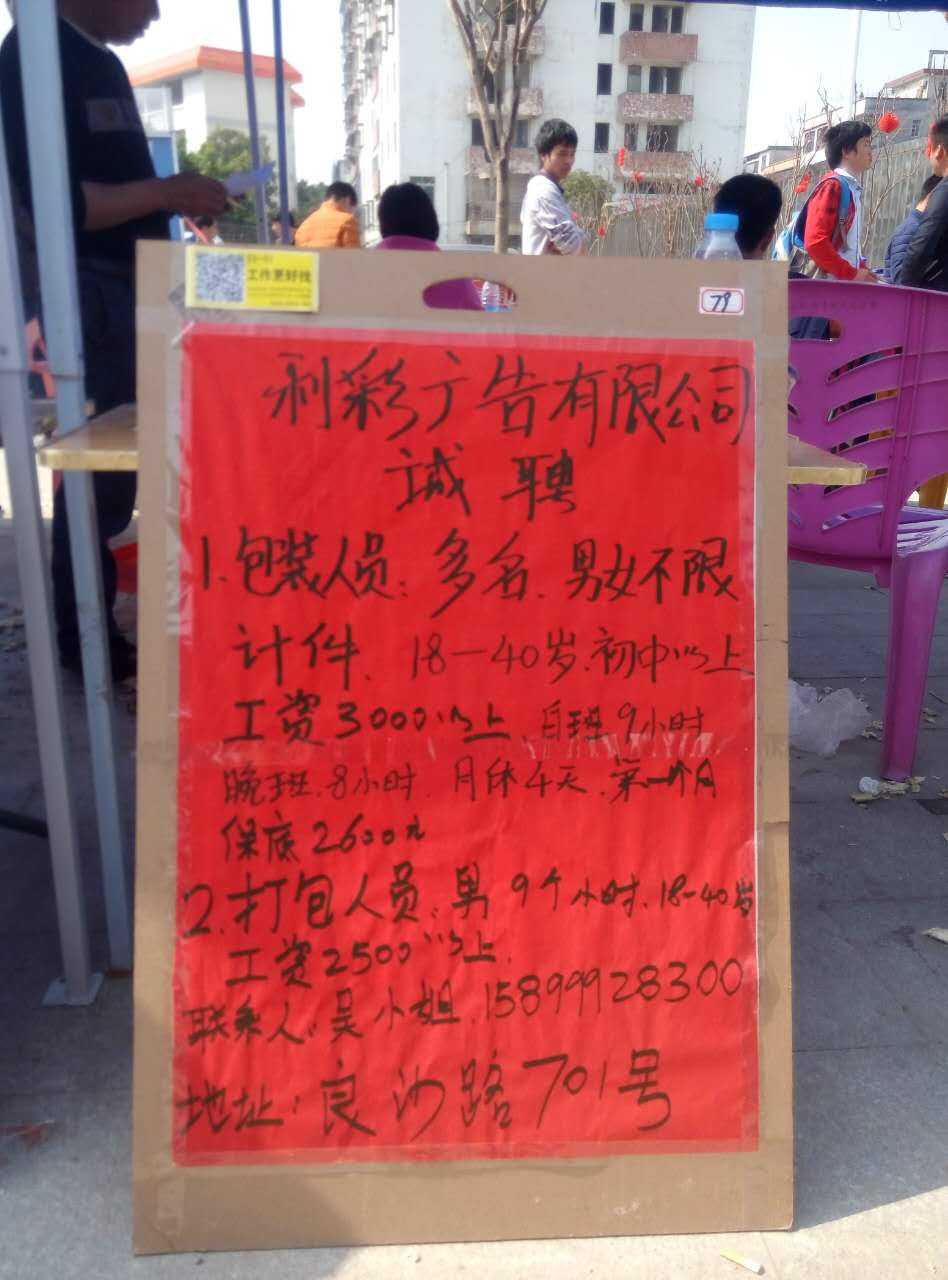 工作更好找
79
利彩广告有限公司
诚聘
1.包装人员.多名.男女不限
计件、18-40岁.初中以上
工资3000以上.白班9小时
晚班.8小时.月休4天.第一个月
保底2600元
2.打包人员.男9个小时.18-40岁
工资2500以上.
联系人:吴小姐.15899928300
地址:良沙路701号